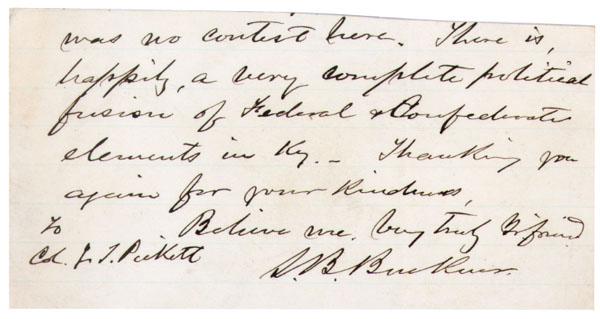 was no contest here. There is,
happily, a very complete political
fusion of Federal & Confederate
elements in Ky. – Thanking you
again for your kindness,
To Believe me, very truly Yr friend
Col. J. T. Pickett S. B. Buckner.